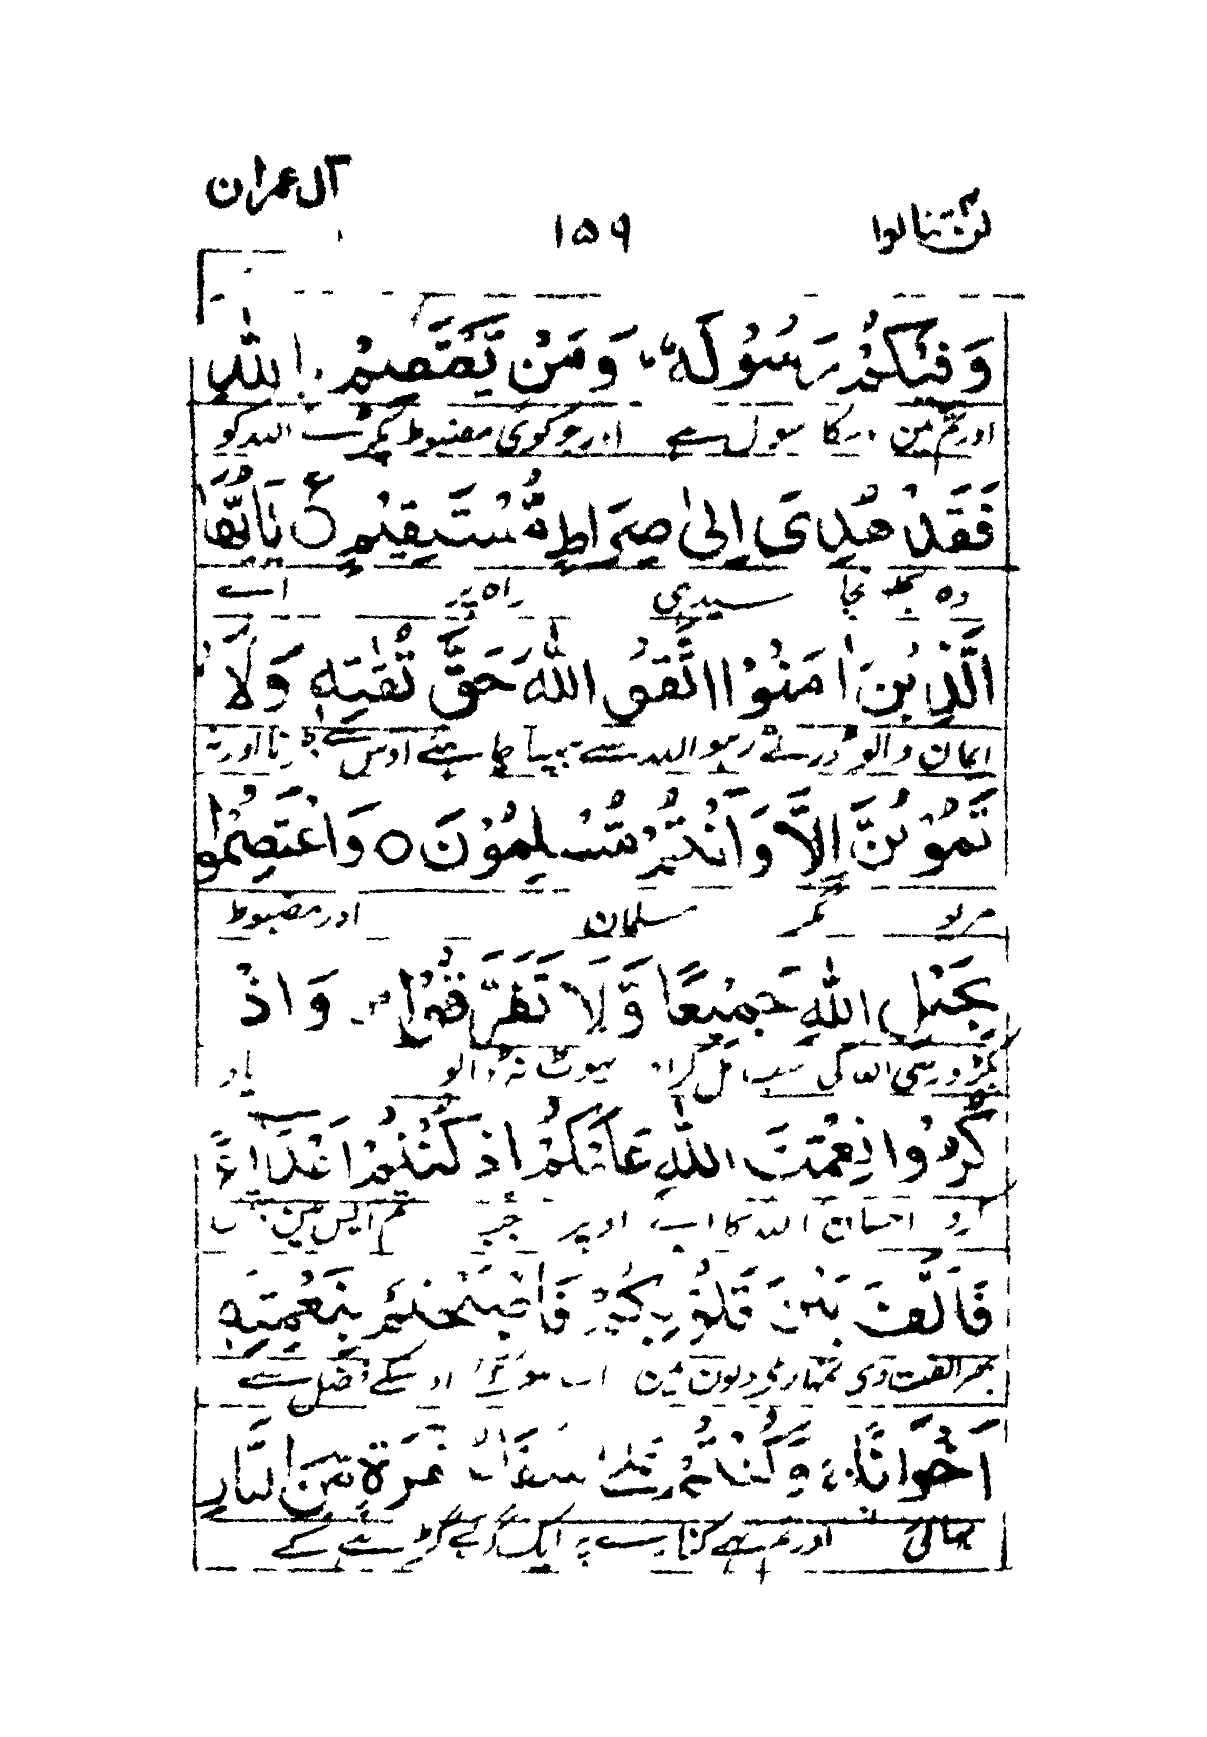 آل عمران
لن تنالوا ۱۵۹
وَفِيْكُمْ رَسُوْلُهٗ ؕ وَمَنْ يَّعْتَصِمْ بِاللّٰهِ
اور تم مین رسول ہے اور جو کوئی مضبوط پکڑے اللہ کو
فَقَدْ هُدِيَ اِلٰى صِرَاطٍ مُّسْتَقِيْمٍ ۝ يٰۤاَيُّهَا
وہ سیدی راہ پر اے
الَّذِيْنَ اٰمَنُوْا اتَّقُوا اللّٰهَ حَقَّ تُقٰتِهٖ وَلَا
ایمان والو ڈرتے رہو اللہ سے جیسا چاہئے اوس سے ڈرنا اور نہ
تَمُوْتُنَّ اِلَّا وَاَنْتُمْ مُّسْلِمُوْنَ ۝ وَاعْتَصِمُوْا
مریو مگر مسلمان اور مضبوط
بِحَبْلِ اللّٰهِ جَمِيْعًا وَّلَا تَفَرَّقُوْا وَاذْ
پکڑو رسی اللہ کی سب مل کر اور پھوٹ نہ ڈالو یاد
كُرُوْا نِعْمَتَ اللّٰهِ عَلَيْكُمْ اِذْ كُنْتُمْ اَعْدَآءً
کرو احسان اللہ کا اپنے اوپر جب تم آپس مین
فَاَلَّفَ بَيْنَ قُلُوْبِكُمْ فَاَصْبَحْتُمْ بِنِعْمَتِهٖۤ
پھر الفت دی تمہارے دلون مین اب ہو گئے اوسکے فضل سے
اِخْوَانًا ۚ وَكُنْتُمْ عَلٰى شَفَا حُفْرَةٍ مِّنَ النَّارِ
بھائی اور تم تھے کنارے پر ایک آگ کے گڑھے کے